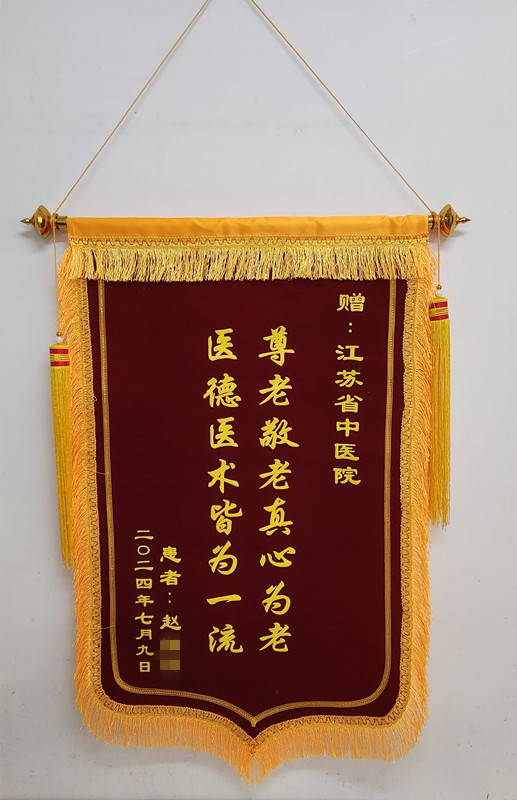 赠：江苏省中医院
尊老敬老真心为老
医德医术皆为一流
患者：赵
二〇二四年七月九日